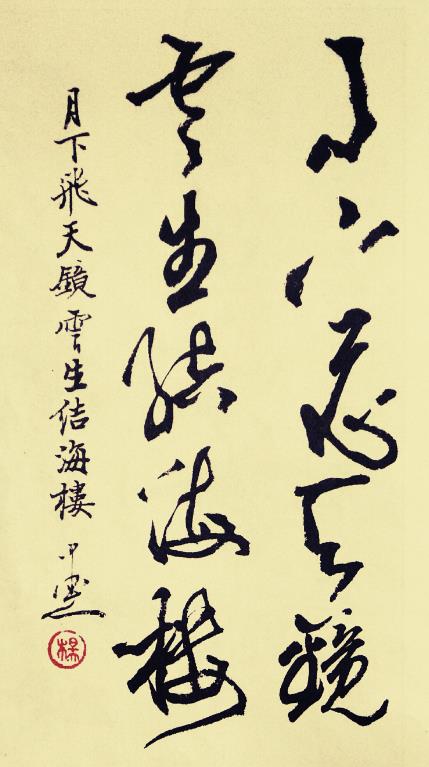 月下飛天鏡
雲生結海樓
月下飛天鏡雲生结海樓